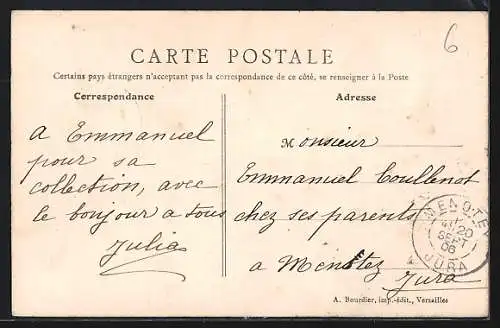 6
CARTE POSTALE
Certains pays étrangers n'acceptant pas la correspondance de ce côté, se renseigner à la Poste
Correspondance
a Emmanuel
pour sa
collection, avec
le bonjour a tous
Julia
Adresse
Monsieur
Emmanuel Coullenot
chez ses parents
a Menotey
Jura
MENOTEY
20
SEPT
06
JURA
A. Bourdier, imp.-édit., Versailles